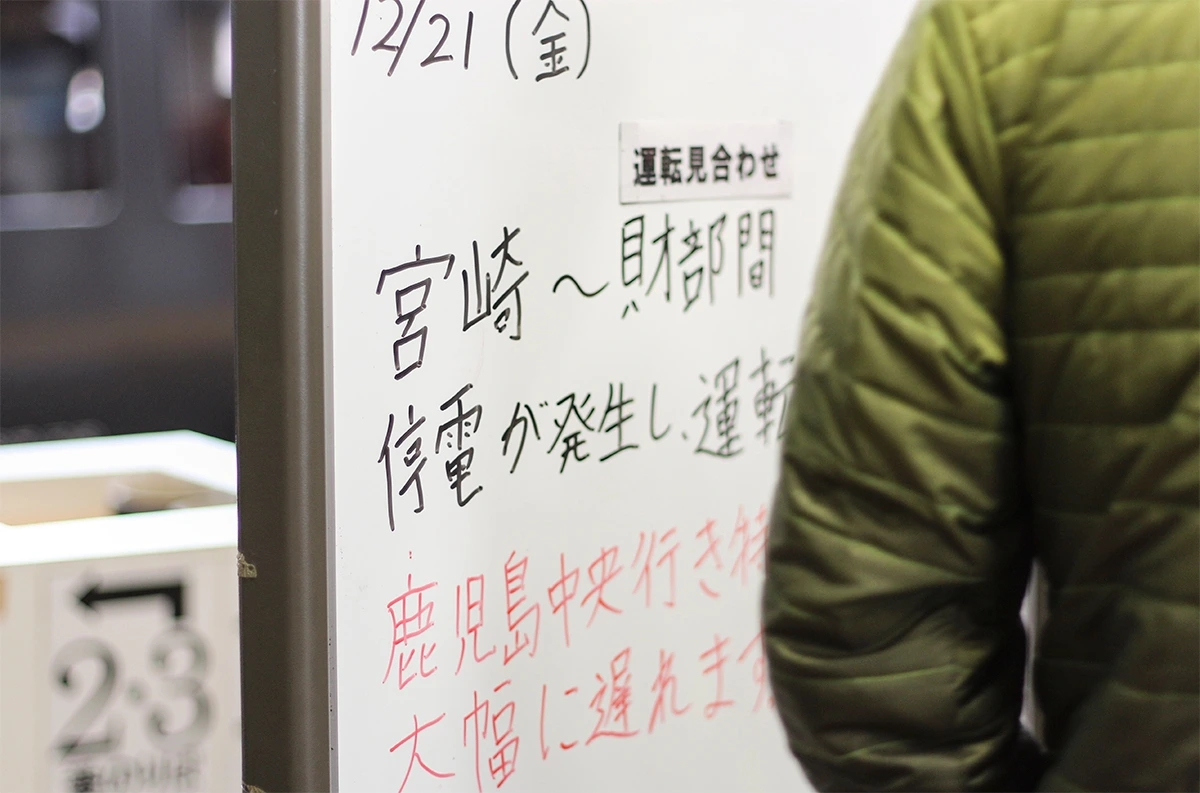 12/21 (金)
運転見合わせ
宮崎〜財部間
停電が発生し、運転
鹿児島中央行き特
大幅に遅れます
2・3